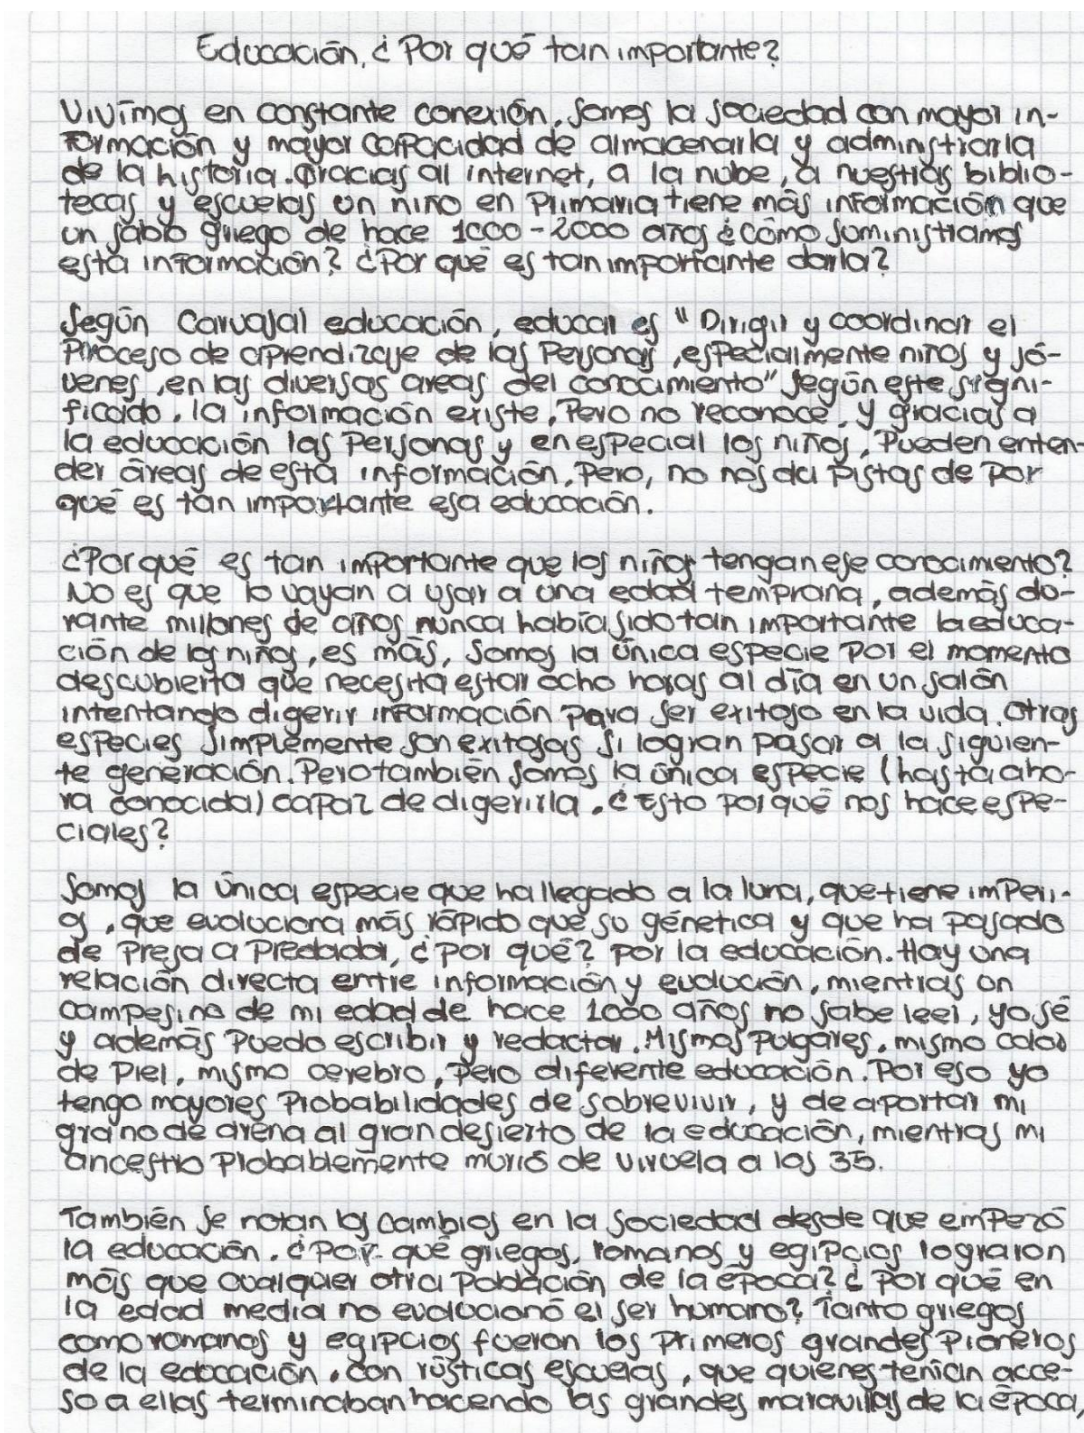 Educación, ¿Por qué tan importante?
Vivímos en constante conexión, somos la sociedad con mayor in-
formación y mayor capacidad de almacenarla y administrarla
de la historia. Gracias al internet, a la nube, a nuestras biblio-
tecas y escuelas un niño en primaria tiene más información que
un sabio griego de hace 1000-2000 años ¿cómo suministramos
esta información? ¿Por qué es tan importante darla?
Según Carvajal educación, educar es "Dirigir y coordinar el
proceso de aprendizaje de las personas, especialmente niños y jó-
venes, en las diversas areas del conocimiento" según este signi-
ficado, la información existe, pero no reconoce, y gracias a
la educación las personas y en especial los niños, pueden enten-
der áreas de esta información, pero, no nos da pistas de por
qué es tan importante esa educación.
¿Por qué es tan importante que los niños tengan ese conocimiento?
No es que lo vayan a usar a una edad temprana, además du-
rante millones de años nunca había sido tan importante la educa-
ción de los niños, es más, somos la única especie por el momento
descubierta que necesita estar ocho horas al día en un salón
intentando digerir información para ser exitoso en la vida. Otras
especies simplemente son exitosas si logran pasar a la siguien-
te generación. Pero también somos la única especie (hasta aho-
ra conocida) capaz de digerirla. ¿Esto por qué nos hace espe-
ciales?
Somos la única especie que ha llegado a la luna, que tiene imperi-
os, que evoluciona más rápido que su génetica y que ha pasado
de presa a predador, ¿por qué? por la educación. Hay una
relación directa entre información y evolución, mientras un
campesino de mi edad de hace 1000 años no sabe leer, yo sé
y además puedo escribir y redactar. Mismos pulgares, mismo color
de piel, mismo cerebro, pero diferente educación. Por eso yo
tengo mayores probabilidades de sobrevivir, y de aportar mi
grano de arena al gran desierto de la educación, mientras mi
ancestro probablemente murió de viruela a los 35.
También se notan los cambios en la sociedad desde que empezó
la educación. ¿Por qué griegos, romanos y egipcios lograron
más que cualquier otra población de la época? ¿Por qué en
la edad media no evolucionó el ser humano? Tanto griegos
como romanos y egipcios fueron los primeros grandes pioneros
de la educación, con rústicas escuelas, que quienes tenían acce-
so a ellas terminaban haciendo las grandes maravillas de la época,